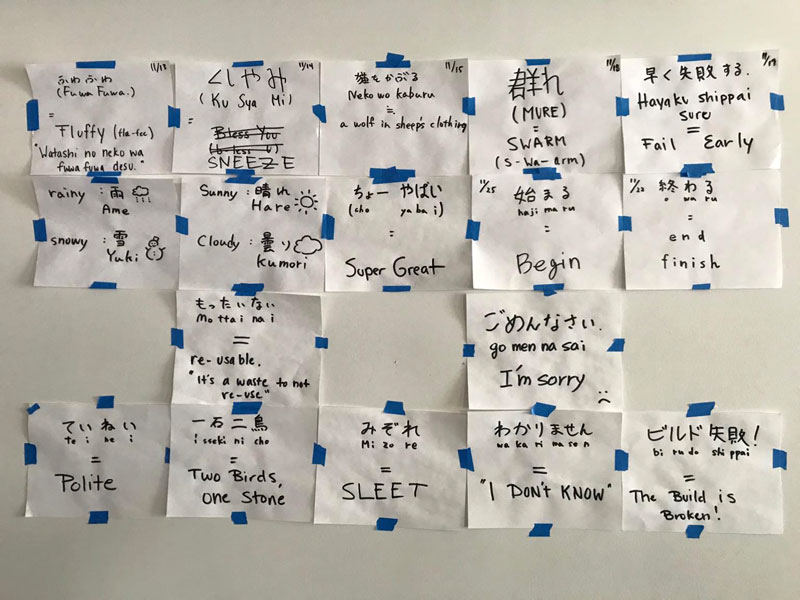 11/13
ふわふわ
(Fuwa Fuwa.)
=
Fluffy (fla-fee)
"Watashi no neko wa
fuwa fuwa desu."
11/14
くしゃみ
(Ku Sya Mi)
=
Bless You
SNEEZE
11/15
猫をかぶる
Neko wo kaburu
≒
a wolf in sheep's clothing
11/18
群れ
(MURE)
=
SWARM
(S-Wa-arm)
11/19
早く失敗する.
Hayaku shippai
suru
=
Fail Early
rainy : 雨
Ame
snowy : 雪
Yuki
Sunny : 晴れ
Hare
Cloudy : 曇り
Kumori
ちょー やばい
(cho ya ba i)
=
Super Great
11/25
始まる
haji ma ru
=
Begin
終わる
o wa ru
=
end
finish
もったいない
Mo ttai na i
=
re-usable.
"It's a waste to not
re-use"
ごめんなさい.
go men na sai
I'm sorry
ていねい
te i ne i
=
Polite
一石二鳥
isseki ni cho
=
Two Birds,
one Stone
みぞれ
Mi zo re
=
SLEET
わかりません
wa ka ri ma se n
=
"I DON'T KNOW"
ビルド失敗!
bi ru do shi ppai
=
The Build is
Broken!